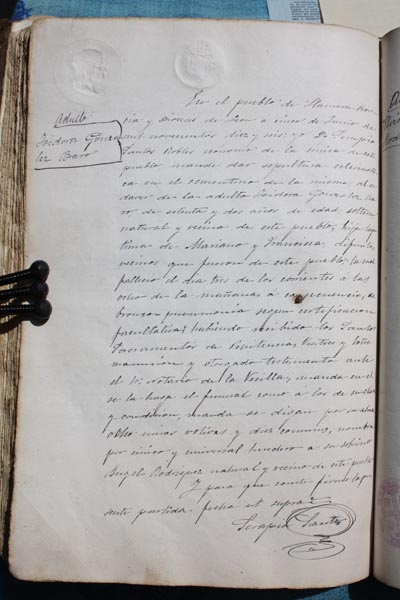 Adulto
Isidora Gonza
lez Baro
En el pueblo de Llamera Provin
cia y Diócesis de León á cinco de Junio de
mil novecientos diez y seis; yo Dn Serapio
Santos Robles ecónomo de la única de este
pueblo mandé dar sepultura eclesiásti
ca en el cementerio de la misma al ca
dáver de la adulta Isidora Gonzalez Ba
ro de setenta y dos años de edad, soltera
natural y vecina de este pueblo, hija legí
tima de Mariano y Francisca, difuntos,
vecinos que fueron de este pueblo; la cual
falleció el dia tres de los corrientes á las
ocho de la mañana á consecuencia, de
bronco pneumonia segun certificacion
facultativa; habiendo recibido los Santos
Sacramentos de Penitencia, Viatico y Extre
maunción y otorgado testamento ante
el Sr. notario de la Vecilla, manda en él
se la haga el funeral como á los de su clase
y condición, manda se digan por su alma
ocho misas votivas y diez comunes, nombra
por único y universal heredero a su sobrino
Angel Rodriguez natural y vecino de este pueblo
Y para que conste firmo la pre
sente partida fecha ut supra =
Serapio Santos